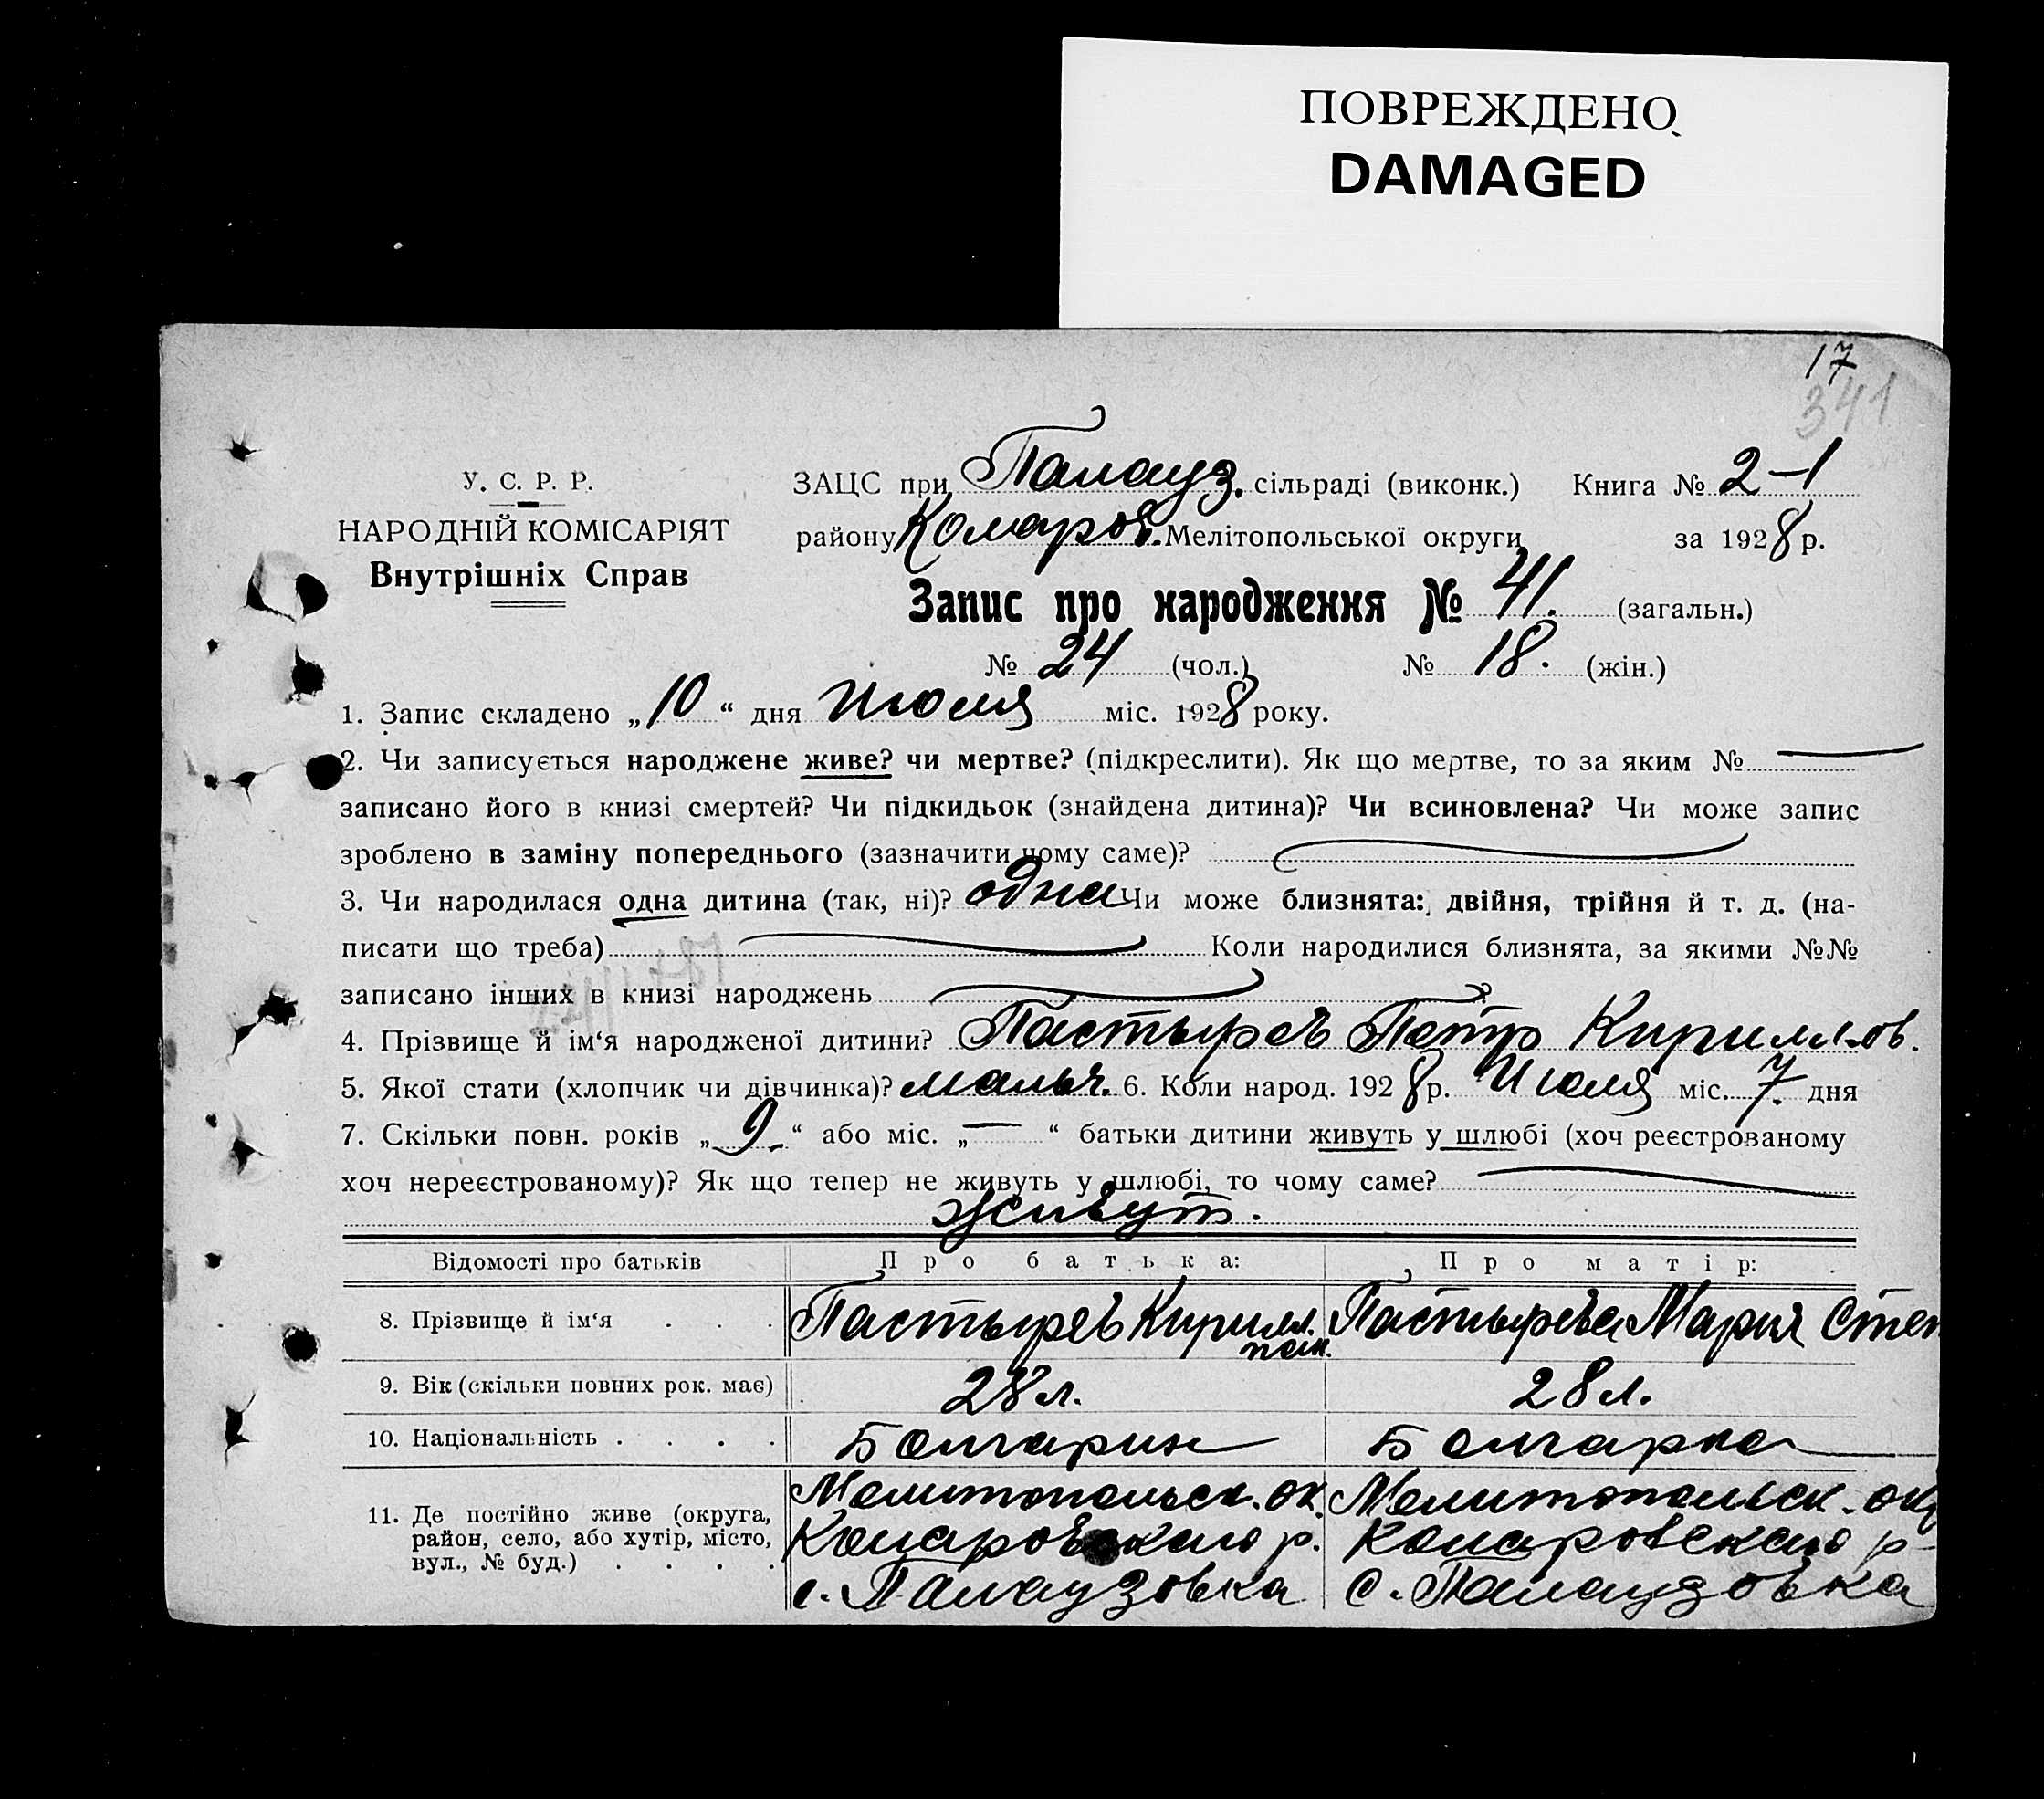 ПОВРЕЖДЕНО
DAMAGED
17
341
У. С. Р. Р.
НАРОДНІЙ КОМІСАРІЯТ
Внутрішніх Справ
ЗАЦС при Палауз. сільраді (виконк.) Книга № 2-1
району Комаров. Мелітопольської округи за 1928 р.
Запис про народження № 41. (загальн.)
№ 24 (чол.) № 18. (жін.)
1. Запис складено „10“ дня Июля міс. 1928 року.
2. Чи записується народжене живе? чи мертве? (підкреслити). Як що мертве, то за яким №
записано його в книзі смертей? Чи підкидьок (знайдена дитина)? Чи всиновлена? Чи може запис
зроблено в заміну попереднього (зазначити чому саме)?
3. Чи народилася одна дитина (так, ні)? одна Чи може близнята: двійня, трійня й т. д. (на-
писати що треба) Коли народилися близнята, за якими №№
записано інших в книзі народжень
4. Прізвище й ім‘я народженої дитини? Пастырев Петр Кириллов.
5. Якої стати (хлопчик чи дівчинка)? мальч. 6. Коли народ. 1928 р. Июля міс. 7. дня
7. Скільки повн. років „9“ або міс. „—“ батьки дитини живуть у шлюбі (хоч реєстрованому
хоч нереєстрованому)? Як що тепер не живуть у шлюбі, то чому саме?
живут.
Відомості про батьків Про батька: Про матір:
8. Прізвище й ім‘я . . . Пастырев Кирилл. Пастырева Мария Степ
9. Вік (скільки повних рок. має) 28 л. 28 л.
10. Національність . . . . Болгарин Болгарка
11. Де постійно живе (округа, район, село, або хутір, місто, вул., № буд.) . . . .
Мелитопольск. ок. Мелитопольск. окр
Комаровского р. Комаровского р-
с. Палаузовка с. Палаузовка